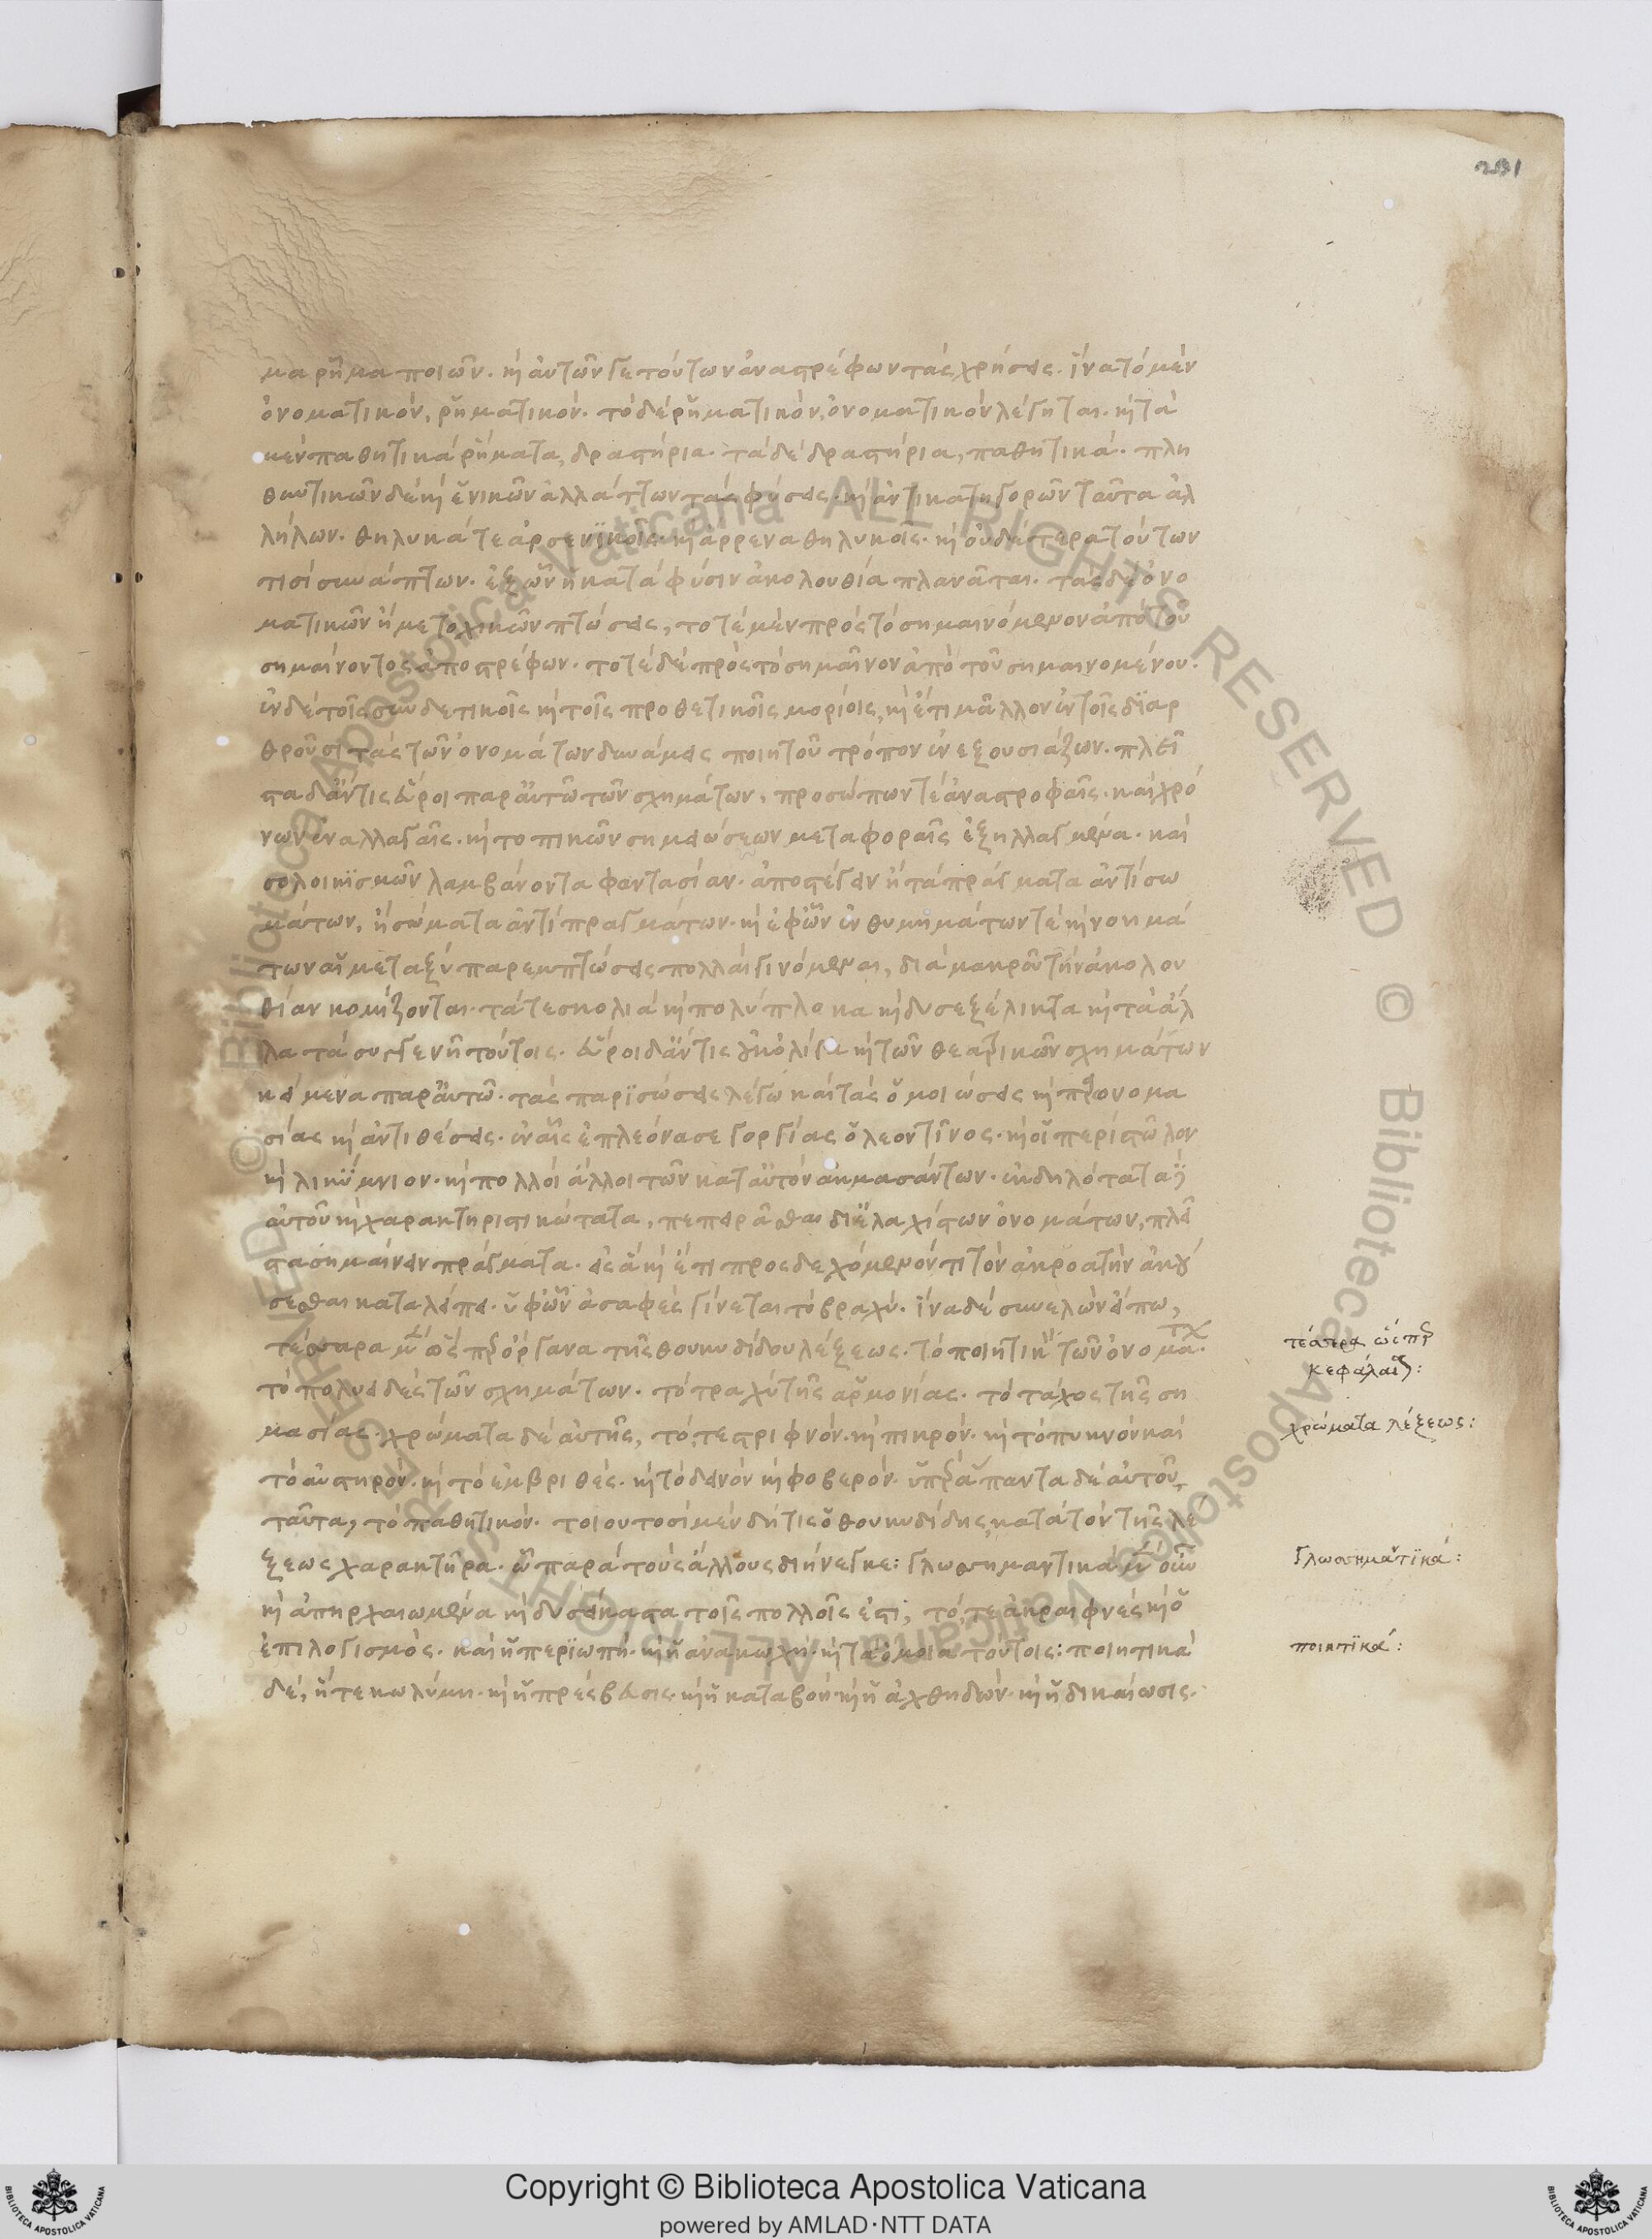 231
μα ρῆμα ποιῶν. καὶ αὐτῶν γε τούτων ἀναστρέφων τὰς χρήσεις. ἵνα τὸ μὲν
ὀνοματικόν, ῥηματικόν. τὸ δὲ ῥηματικόν, ὀνοματικὸν λέγηται. καὶ τὰ
μὲν παθητικὰ ῥήματα, δραστήρια. τὰ δὲ δραστήρια, παθητικά. πλη
θυντικῶν δὲ καὶ ἑνικῶν ἀλλάττων τὰς φύσεις. καὶ ἀντικατηγορῶν ταῦτα ἀλ
λήλων. θηλυκά τε ἀρσενικοῖς. καὶ ἄρρενα θηλυκοῖς. καὶ οὐδέτερα τούτων
τισὶ συνάπτων. ἐξ ὧν ἡ κατὰ φύσιν ἀκολουθία πλανᾶται. τὰς δὲ ὀνο
ματικῶν ἢ μετοχικῶν πτώσεις, τοτὲ μὲν πρὸς τὸ σημαινόμενον ἀπὸ τοῦ
σημαίνοντος ἀποστρέφων. τοτὲ δὲ πρὸς τὸ σημαῖνον ἀπὸ τοῦ σημαινομένου.
ἐν δὲ τοῖς συνδετικοῖς καὶ τοῖς προθετικοῖς μορίοις, καὶ ἔτι μᾶλλον ἐν τοῖς διαρ
θροῦσι τὰς τῶν ὀνομάτων δυνάμεις ποιητοῦ τρόπον ἐνεξουσιάζων. πλεῖ
στα δ' ἄν τις εὕροι παρ' αὐτῷ τῶν σχημάτων. προσώπων τὲ ἀναστροφαῖς. καὶ χρό
νων ἐναλλαγαῖς. καὶ τοπικῶν σημειώσεων μεταφοραῖς ἐξηλλαγμένα. καὶ
σολοικισμῶν λαμβάνοντα φαντασίαν. ἀποστέγειν ἢ τὰ πράγματα ἀντὶ σω
μάτων, ἢ σώματα ἀντὶ πραγμάτων. καὶ ἐφ' ὧν ἐνθυμημάτων τὲ καὶ νοημά
των αἱ μεταξὺ παρεμπτώσεις πολλαὶ γινόμεναι, διὰ μακροῦ τὴν ἀκολου
θίαν κομίζονται. τά τε σκολιὰ καὶ πολύπλοκα καὶ δυσεξέλικτα καὶ τὰ ἄλ
λα τὰ συγγενῆ τούτοις. εὕροι δ' ἄν τις οὐκ ὀλίγα καὶ τῶν θεατρικῶν σχημάτων
κείμενα παρ' αὐτῷ. τὰς παρισώσεις λέγω καὶ τὰς ὁμοιώσεις καὶ παρονομα
σίας καὶ ἀντιθέσεις. ἐν αἷς ἐπλεόνασε Γοργίας ὁ λεοντῖνος. καὶ οἱ περὶ πῶλον
καὶ λικύμνιον. καὶ πολλοὶ ἄλλοι τῶν κατ' αὐτὸν ἀκμασάντων. ἐκδηλότατα δὲ
αὐτοῦ καὶ χαρακτηριστικώτατα, πεπειρᾶσθαι δι' ἐλαχίστων ὀνομάτων, πλεῖ
στα σημαίνειν πράγματα. εἰς ἃ καὶ ἔτι προσδεχόμενόν τι τὸν ἀκροατὴν ἀκού
σεσθαι καταλείπει. ὑφ' ὧν ἀσαφὲς γίνεται τὸ βραχύ. ἵνα δὲ συνελὼν εἴπω,
τέσσαρα μέν ὥσπερ ὄργανα τῆς θουκυδίδου λέξεως. τὸ ποιητικὸν τῶν ὀνομάτων.
τὸ πολυειδὲς τῶν σχημάτων. τὸ τραχὺ τῆς ἁρμονίας. τὸ τάχος τῆς ση
μασίας. χρώματα δὲ αὐτῆς, τό τε στριφνόν. καὶ πικρόν. καὶ τὸ πυκνὸν καὶ
τὸ αὐστηρόν. καὶ τὸ ἐμβριθές. καὶ τὸ δεινὸν καὶ φοβερόν. ὑπὲρ ἅπαντα δὲ αὐτοῦ
ταῦτα, τὸ παθητικόν. τοιουτοσὶ μὲν δή τις ὁ θουκυδίδης κατὰ τὸν τῆς λέ
ξεως χαρακτῆρα. ᾧ παρὰ τοὺς ἄλλους διήνεγκε: γλωσσημαντικὰ μὲν οὖν
καὶ ἀπηρχαιωμένα καὶ δυσείκαστα τοῖς πολλοῖς ἐστι, τό, τε ἀκραιφνὲς καὶ ὁ
ἐπιλογισμὸς. καὶ ἡ περιωπή. καὶ ἡ ἀνακωχή. καὶ τὰ ὅμοια τούτοις: ποιητικὰ
δέ, ἥ τε κωλύμη. καὶ ἡ πρέσβευσις. καὶ ἡ καταβοή. καὶ ἡ ἀχθηδών. καὶ ἡ δικαίωσις.
χρώματα λέξεως:
γλωσσηματικά:
ποιητικά:
© Biblioteca Apostolica Vaticana ALL RIGHTS RESERVED © Biblioteca Apostolica Vaticana ALL RIGHTS RESERVED
Copyright © Biblioteca Apostolica Vaticana
powered by AMLAD·NTT DATA
BIBLIOTECA APOSTOLICA VATICANA
BIBLIOTECA APOSTOLICA VATICANA